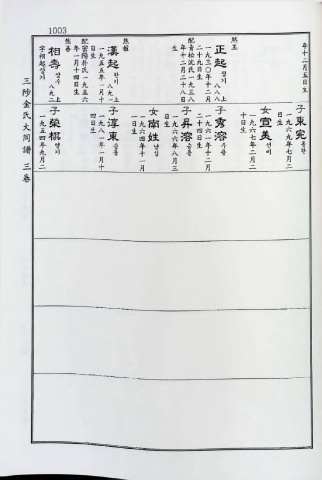 1003
年十二月五日生
子東完 동완
一九六九年七月二
日生
女宣美 선미
一九六七年二月二
十日生
然玉
正起 정기 八八八上
一九三〇年十二月
二十九日生
配青松沈氏一九三八
年十二月二十二日
生
子秀溶 수용
一九六一年十二月
二十四日生
子昇溶 승용
一九六六年八月三
日生
女南姬 남희
一九六四年十一月
一日生
然植
漢起 한기 八九一上
一九五五年一月十
日生
配密陽朴氏一九五六
年一月十四日生
子淳東 순동
一九八一年一月十
四日生
然善
相壽 상수 八九二上
字相起 상기
子榮祺 영기
一九五四年九月二
三陟金氏大同譜 三卷